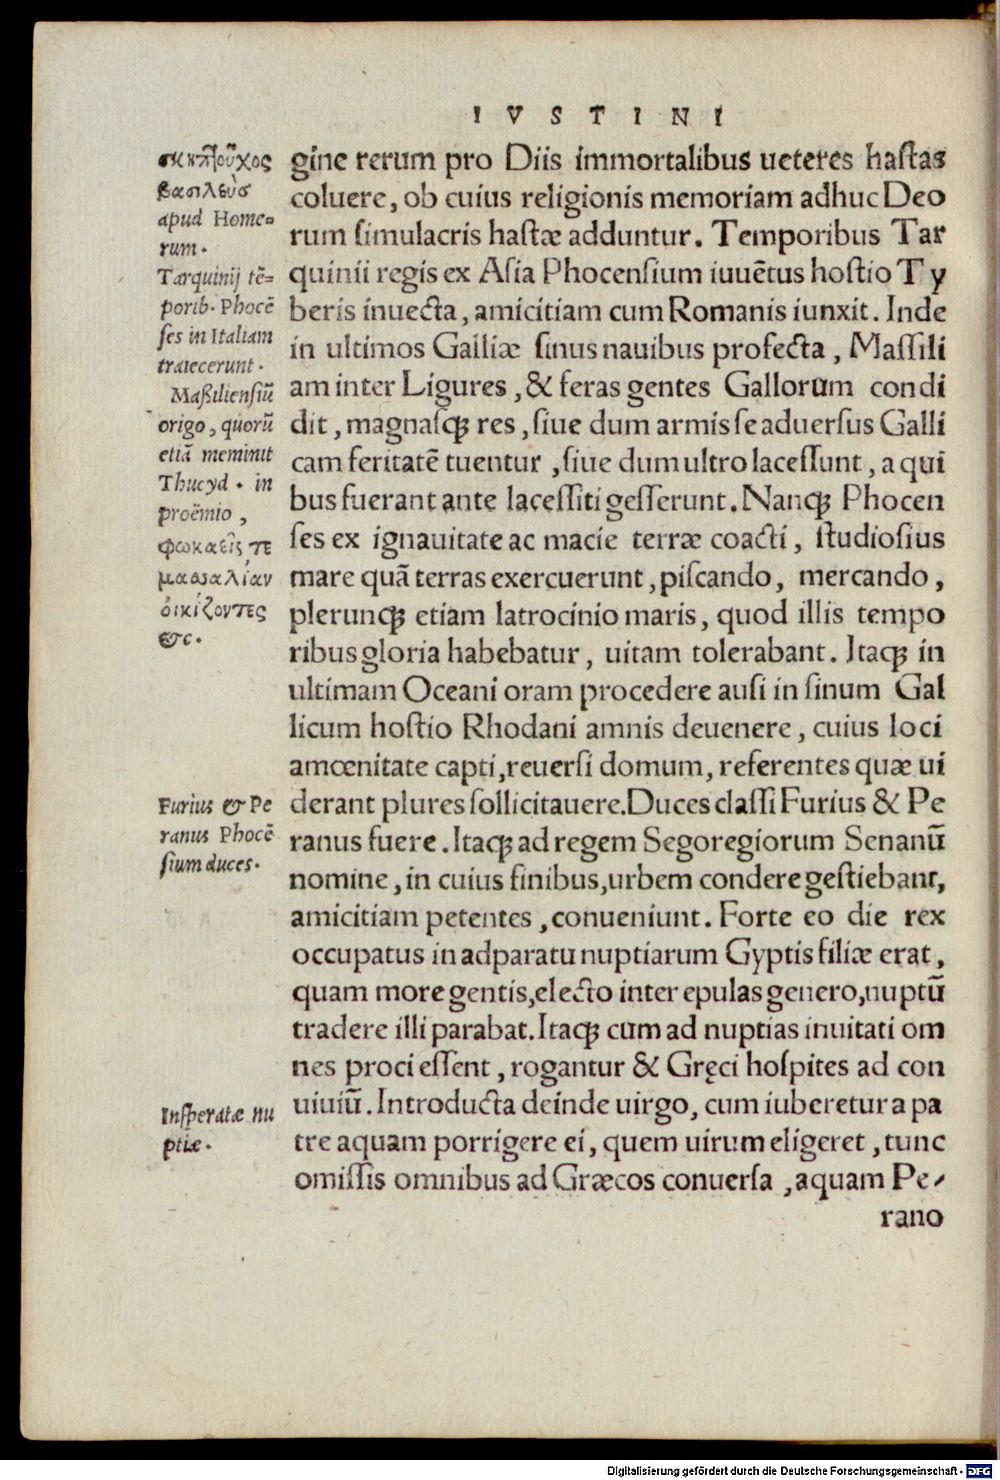 IVSTINI
σκηπτοῦχος
βασιλεὺς
apud Home-
rum.
Tarquinij tẽ-
porib. Phocẽ
ſes in Italiam
traiecerunt.
Maßilienſiũ
origo, quorũ
etiã meminit
Thucyd. in
proëmio,
φωκαεῖς τε
μασσαλίαν
ὀικίζοντες
&c.
Furius & Pe
ranus Phocẽ
ſium duces.
Inſperatæ nu
ptiæ.
gine rerum pro Diis immortalibus ueteres haſtas
coluere, ob cuius religionis memoriam adhuc Deo
rum ſimulacris haſtæ adduntur. Temporibus Tar
quinii regis ex Aſia Phocenſium iuuẽtus hoſtio Ty
beris inuecta, amicitiam cum Romanis iunxit. Inde
in ultimos Galliæ ſinus nauibus profecta, Maſſili
am inter Ligures, & feras gentes Gallorum condi
dit, magnaſqꝫ res, ſiue dum armis ſe aduerſus Galli
cam feritatẽ tuentur, ſiue dum ultro laceſſunt, a qui
bus fuerant ante laceſſiti geſſerunt. Nanqꝫ Phocen
ſes ex ignauitate ac macie terræ coacti, ſtudioſius
mare quã terras exercuerunt, piſcando, mercando,
plerunqꝫ etiam latrocinio maris, quod illis tempo
ribus gloria habebatur, uitam tolerabant. Itaqꝫ in
ultimam Oceani oram procedere auſi in ſinum Gal
licum hoſtio Rhodani amnis deuenere, cuius loci
amœnitate capti, reuerſi domum, referentes quæ ui
derant plures ſollicitauere. Duces claſſi Furius & Pe
ranus fuere. Itaqꝫ ad regem Segoregiorum Senanũ
nomine, in cuius finibus, urbem condere geſtiebant,
amicitiam petentes, conueniunt. Forte eo die rex
occupatus in adparatu nuptiarum Gyptis filiæ erat,
quam more gentis, electo inter epulas genero, nuptũ
tradere illi parabat. Itaqꝫ cum ad nuptias inuitati om
nes proci eſſent, rogantur & Gręci hoſpites ad con
uiuiũ. Introducta deinde uirgo, cum iuberetur a pa
tre aquam porrigere ei, quem uirum eligeret, tunc
omiſſis omnibus ad Græcos conuerſa, aquam Pe-
rano
Digitalisierung gefördert durch die Deutsche Forschungsgemeinschaft - DFG